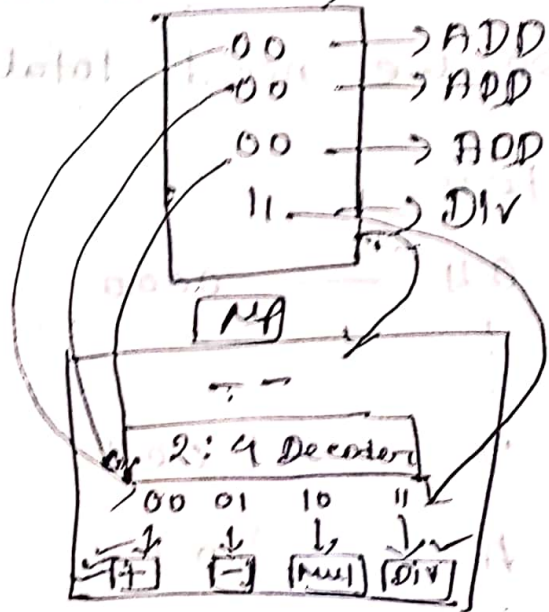 00 → ADD
00 → ADD
00 → ADD
11 → Div
MP
2:4 Decoder
00 01 10 11
+ - Mul Div